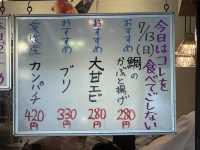 今日はコレを
食べてごしない
9/13(日)
おすすめ 鯛のかぶと揚げ 280円
おすすめ 大甘エビ 280円
おすすめ ブリ 330円
愛媛産 カンパチ 420円